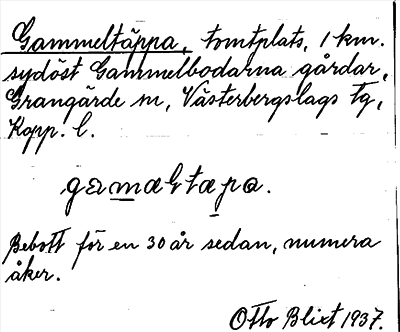 Gammeltäppa, tomtplats, 1 km.
sydöst Gammelbodarna gårdar,
Grangärde sn, Västerbergslags tg,
Kopp. l.
gamæltæpa.
Bebott för en 30 år sedan, numera
åker.
Otto Blixt 1937.